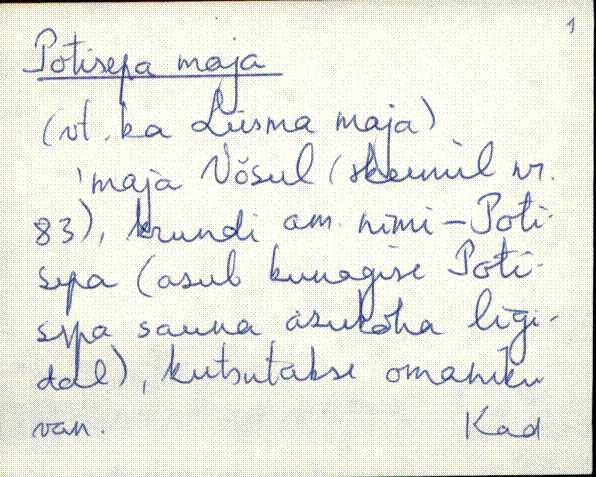 1
Potisepa maja
(vt. ka Liisma maja)
'maja Võsul (skeemil nr.
83), krundi am. nimi – Poti-
sepa (asub kunagise Poti-
sepa sauna asukoha ligi-
dal), kutsutakse omaniku
van. Kad